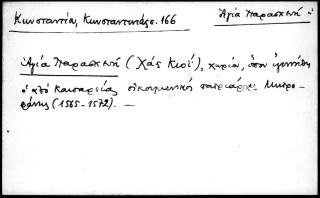 Κωνσταντία, Κωνσταντινιάς σ. 166
Ἁγία Παρασκευὴ
Ἁγία Παρασκευὴ (Χάς Κιοϊ), χωρίον, ὅπου ἐγεννήθη
ὁ ἀπὸ Καισαρείας οἰκουμενικὸς πατριάρχης Μητρο-
φάνης (1565-1572). —